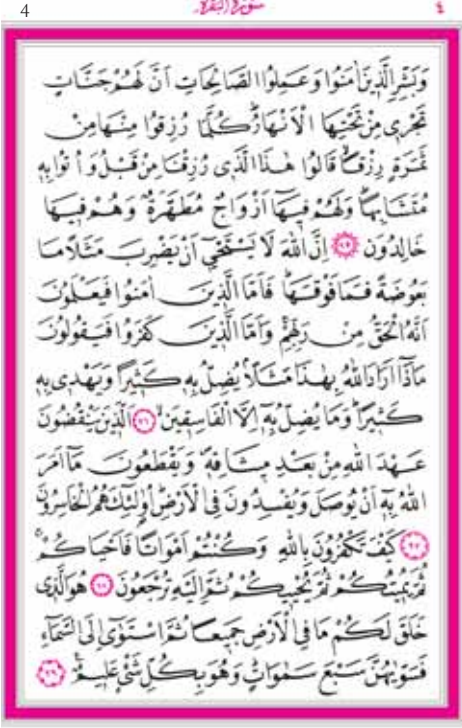 4 سورة البقرة ٤
وَبَشِّرِ الَّذِينَ اٰمَنُوا وَعَمِلُوا الصَّالِحَاتِ اَنَّ لَهُمْ جَنَّاتٍ
تَجْرِى مِنْ تَحْتِهَا الْاَنْهَارُ كُلَّمَا رُزِقُوا مِنْهَا مِنْ
ثَمَرَةٍ رِزْقًا قَالُوا هٰذَا الَّذِى رُزِقْنَا مِنْ قَبْلُ وَاُتُوا بِهِ
مُتَشَابِهًا وَلَهُمْ فِيهَا اَزْوَاجٌ مُطَهَّرَةٌ وَهُمْ فِيهَا
خَالِدُونَ ﴿٢٥﴾ اِنَّ اللّٰهَ لَا يَسْتَحْيِ اَنْ يَضْرِبَ مَثَلًا مَا
بَعُوضَةً فَمَا فَوْقَهَا فَاَمَّا الَّذِينَ اٰمَنُوا فَيَعْلَمُونَ
اَنَّهُ الْحَقُّ مِنْ رَبِّهِمْ وَاَمَّا الَّذِينَ كَفَرُوا فَيَقُولُونَ
مَاذَا اَرَادَ اللّٰهُ بِهٰذَا مَثَلًا يُضِلُّ بِهِ كَثِيرًا وَيَهْدِى بِهِ
كَثِيرًا وَمَا يُضِلُّ بِهِ اِلَّا الْفَاسِقِينَ ﴿٢٦﴾ اَلَّذِينَ يَنْقُضُونَ
عَهْدَ اللّٰهِ مِنْ بَعْدِ مِيثَاقِهِ وَيَقْطَعُونَ مَا اَمَرَ
اللّٰهُ بِهِ اَنْ يُوصَلَ وَيُفْسِدُونَ فِى الْاَرْضِ اُولٰئِكَ هُمُ الْخَاسِرُونَ
﴿٢٧﴾ كَيْفَ تَكْفُرُونَ بِاللّٰهِ وَكُنْتُمْ اَمْوَاتًا فَاَحْيَاكُمْ
ثُمَّ يُمِيتُكُمْ ثُمَّ يُحْيِيكُمْ ثُمَّ اِلَيْهِ تُرْجَعُونَ ﴿٢٨﴾ هُوَ الَّذِى
خَلَقَ لَكُمْ مَا فِى الْاَرْضِ جَمِيعًا ثُمَّ اسْتَوٰى اِلَى السَّمَاءِ
فَسَوّٰيهُنَّ سَبْعَ سَمٰوَاتٍ وَهُوَ بِكُلِّ شَىْءٍ عَلِيمٌ ﴿٢٩﴾